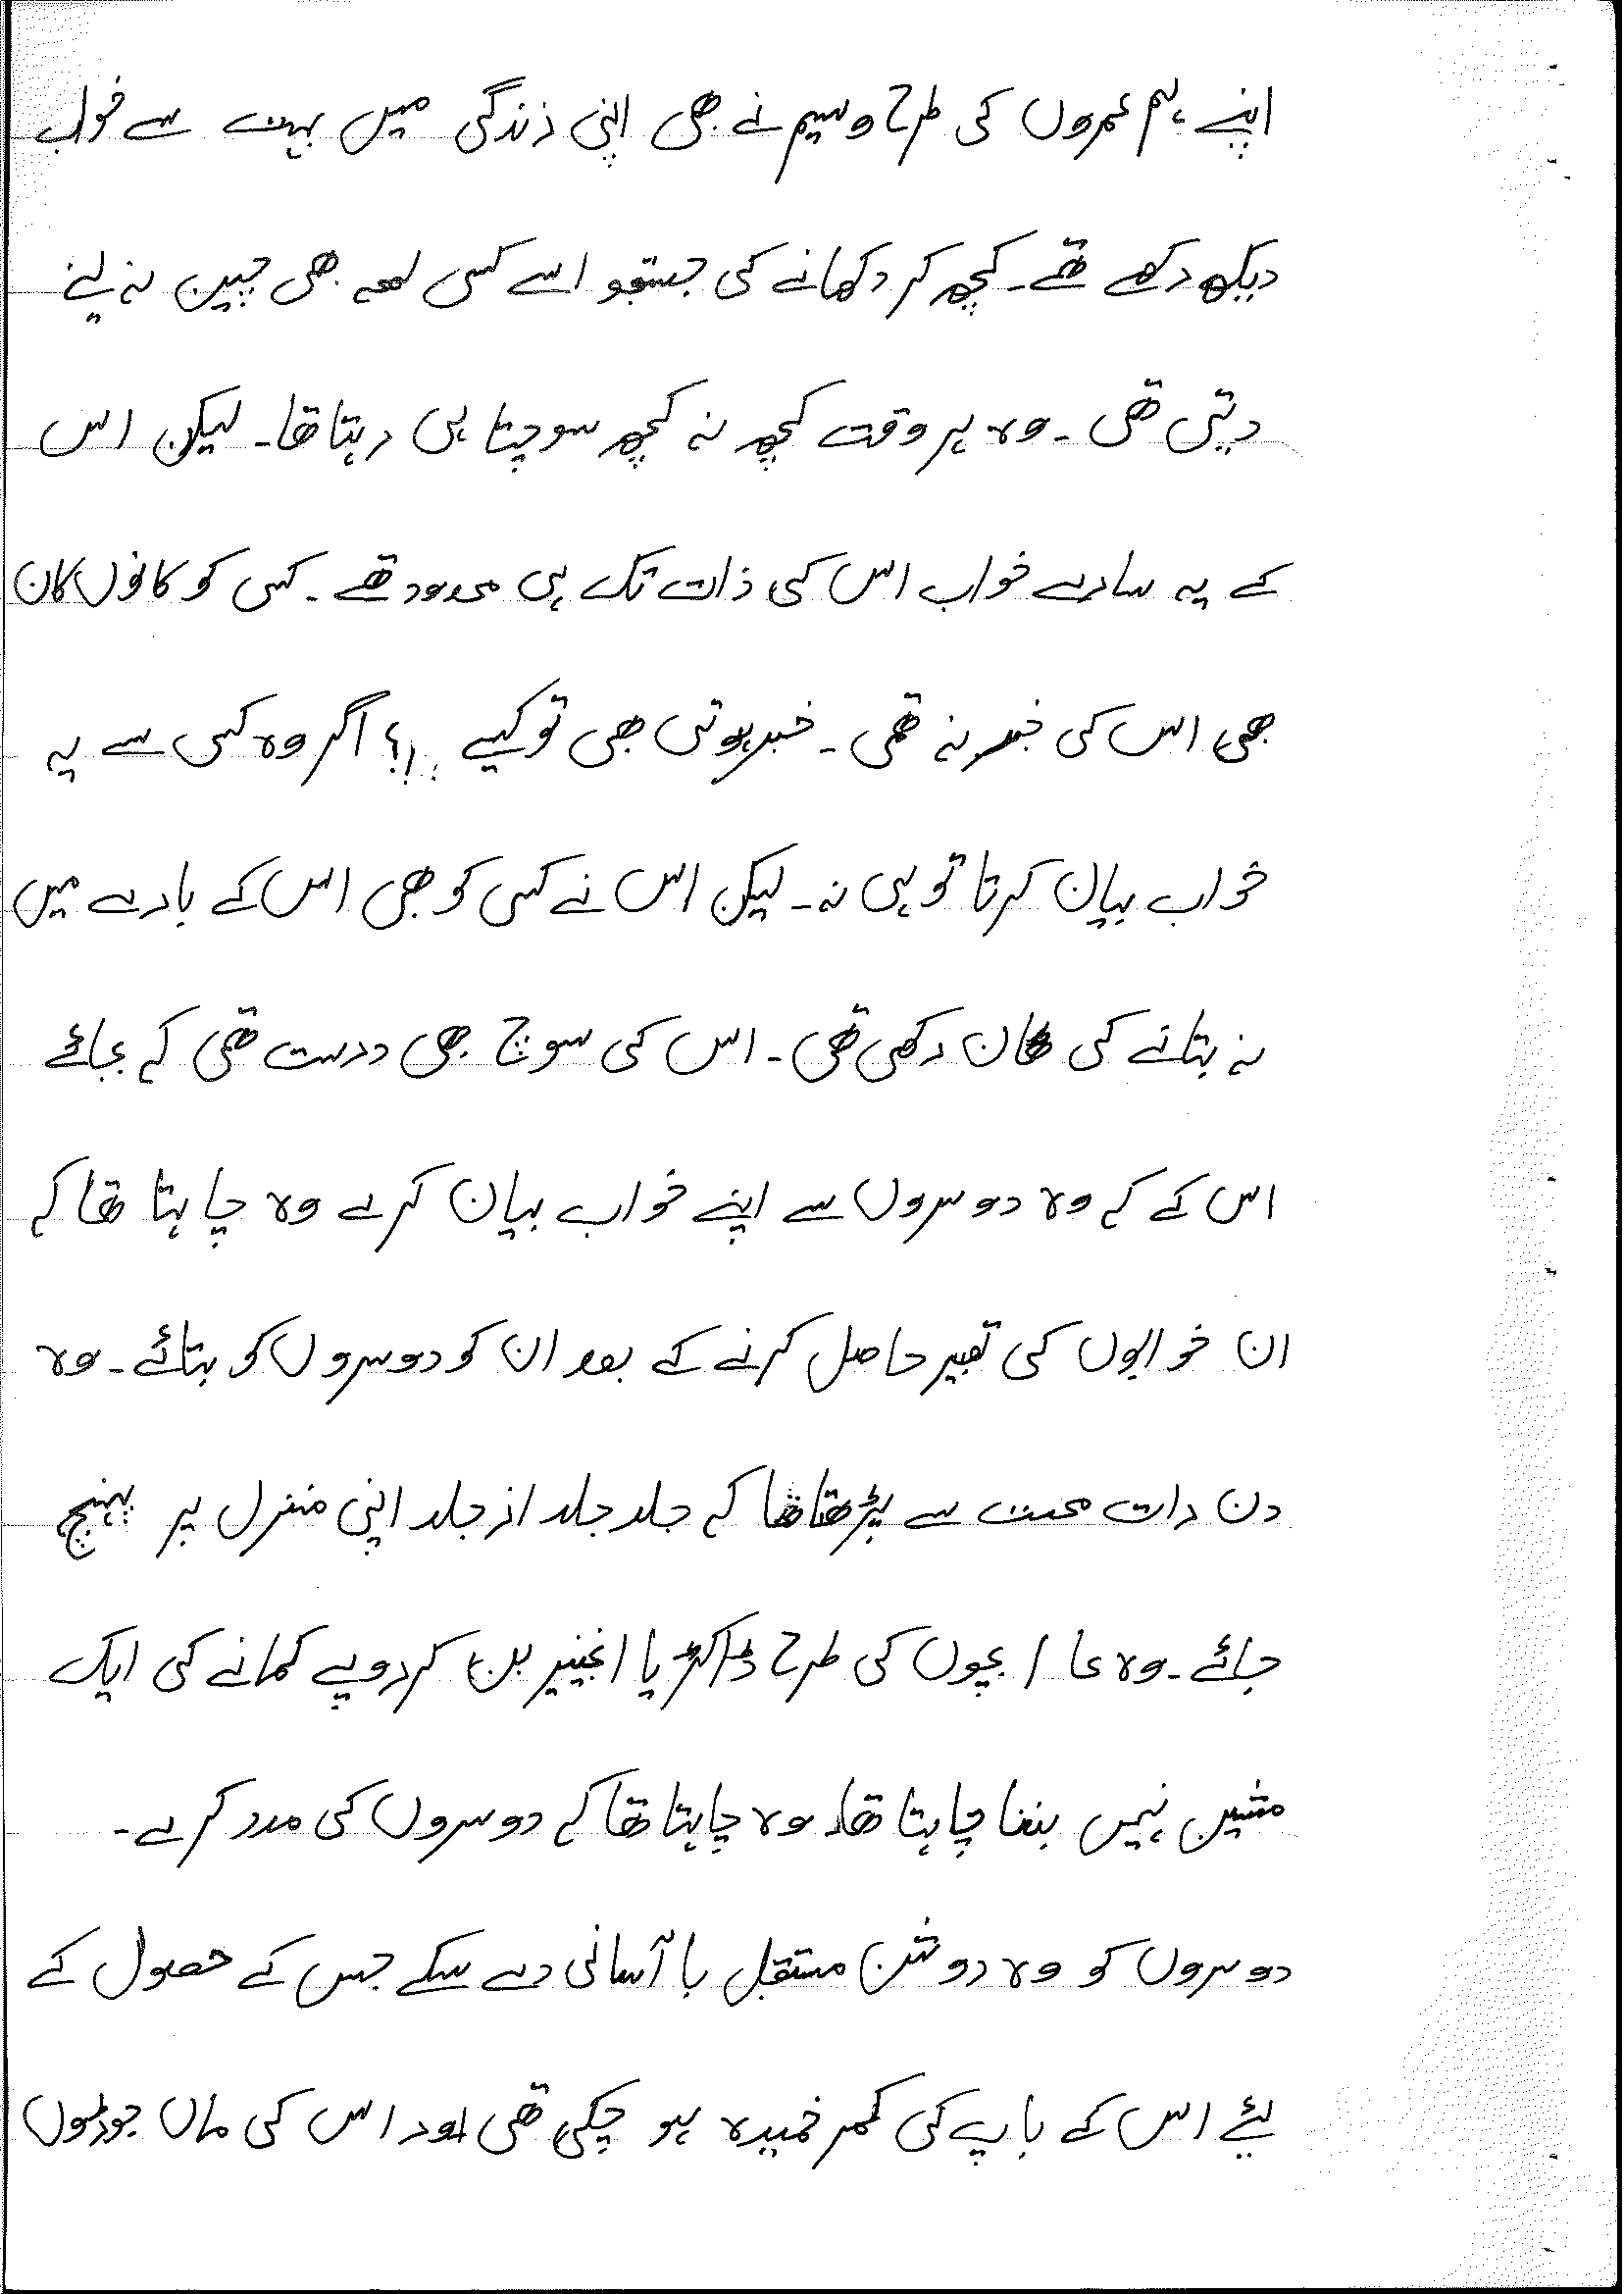 اپنے ہم عمروں کی طرح وسیم نے بھی اپنی زندگی میں بہت سے خواب
دیکھ رکھے تھے۔ کچھ کر دکھانے کی جستجو اسے کسی لمحہ بھی چین نہ لینے
دیتی تھی۔ وہ ہر وقت کچھ نہ کچھ سوچتا ہی رہتا تھا۔ لیکن اس
کے یہ سارے خواب اس کی ذات تک ہی محدود تھے۔ کسی کو کانوں کان
بھی اس کی خبر نہ تھی۔ خبر ہوتی بھی تو کیسے ؟ اگر وہ کسی سے یہ
خواب بیان کرتا تو ہی نہ۔ لیکن اس نے کسی کو بھی اس کے بارے میں
نہ بتانے کی ٹھان رکھی تھی۔ اس کی سوچ بھی درست تھی کہ بجائے
اس کے کہ وہ دوسروں سے اپنے خواب بیان کرے وہ چاہتا تھا کہ
ان خوابوں کی تعبیر حاصل کرنے کے بعد ان کو دوسروں کو بتائے۔ وہ
دن رات محنت سے پڑھتا تھا کہ جلد جلد از جلد اپنی منزل پر پہنچ
جائے۔ وہ عام بچوں کی طرح ڈاکٹر یا انجینیر بن کر روپے کمانے کی ایک
مشین نہیں بننا چاہتا تھا۔ وہ چاہتا تھا کہ دوسروں کی مدد کرے۔
دوسروں کو وہ روشن مستقبل با آسانی دے سکے جس کے حصول کے
لیے اس کے باپ کی کمر خمیدہ ہو چکی تھی اور اس کی ماں جوڑوں